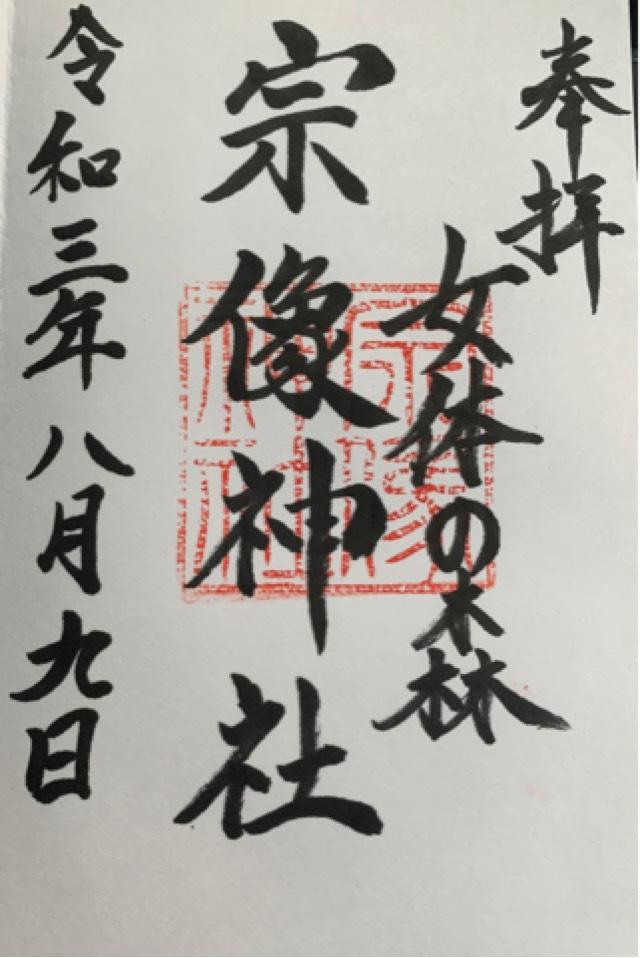 奉拝
女体の森
宗像神社
令和三年八月九日